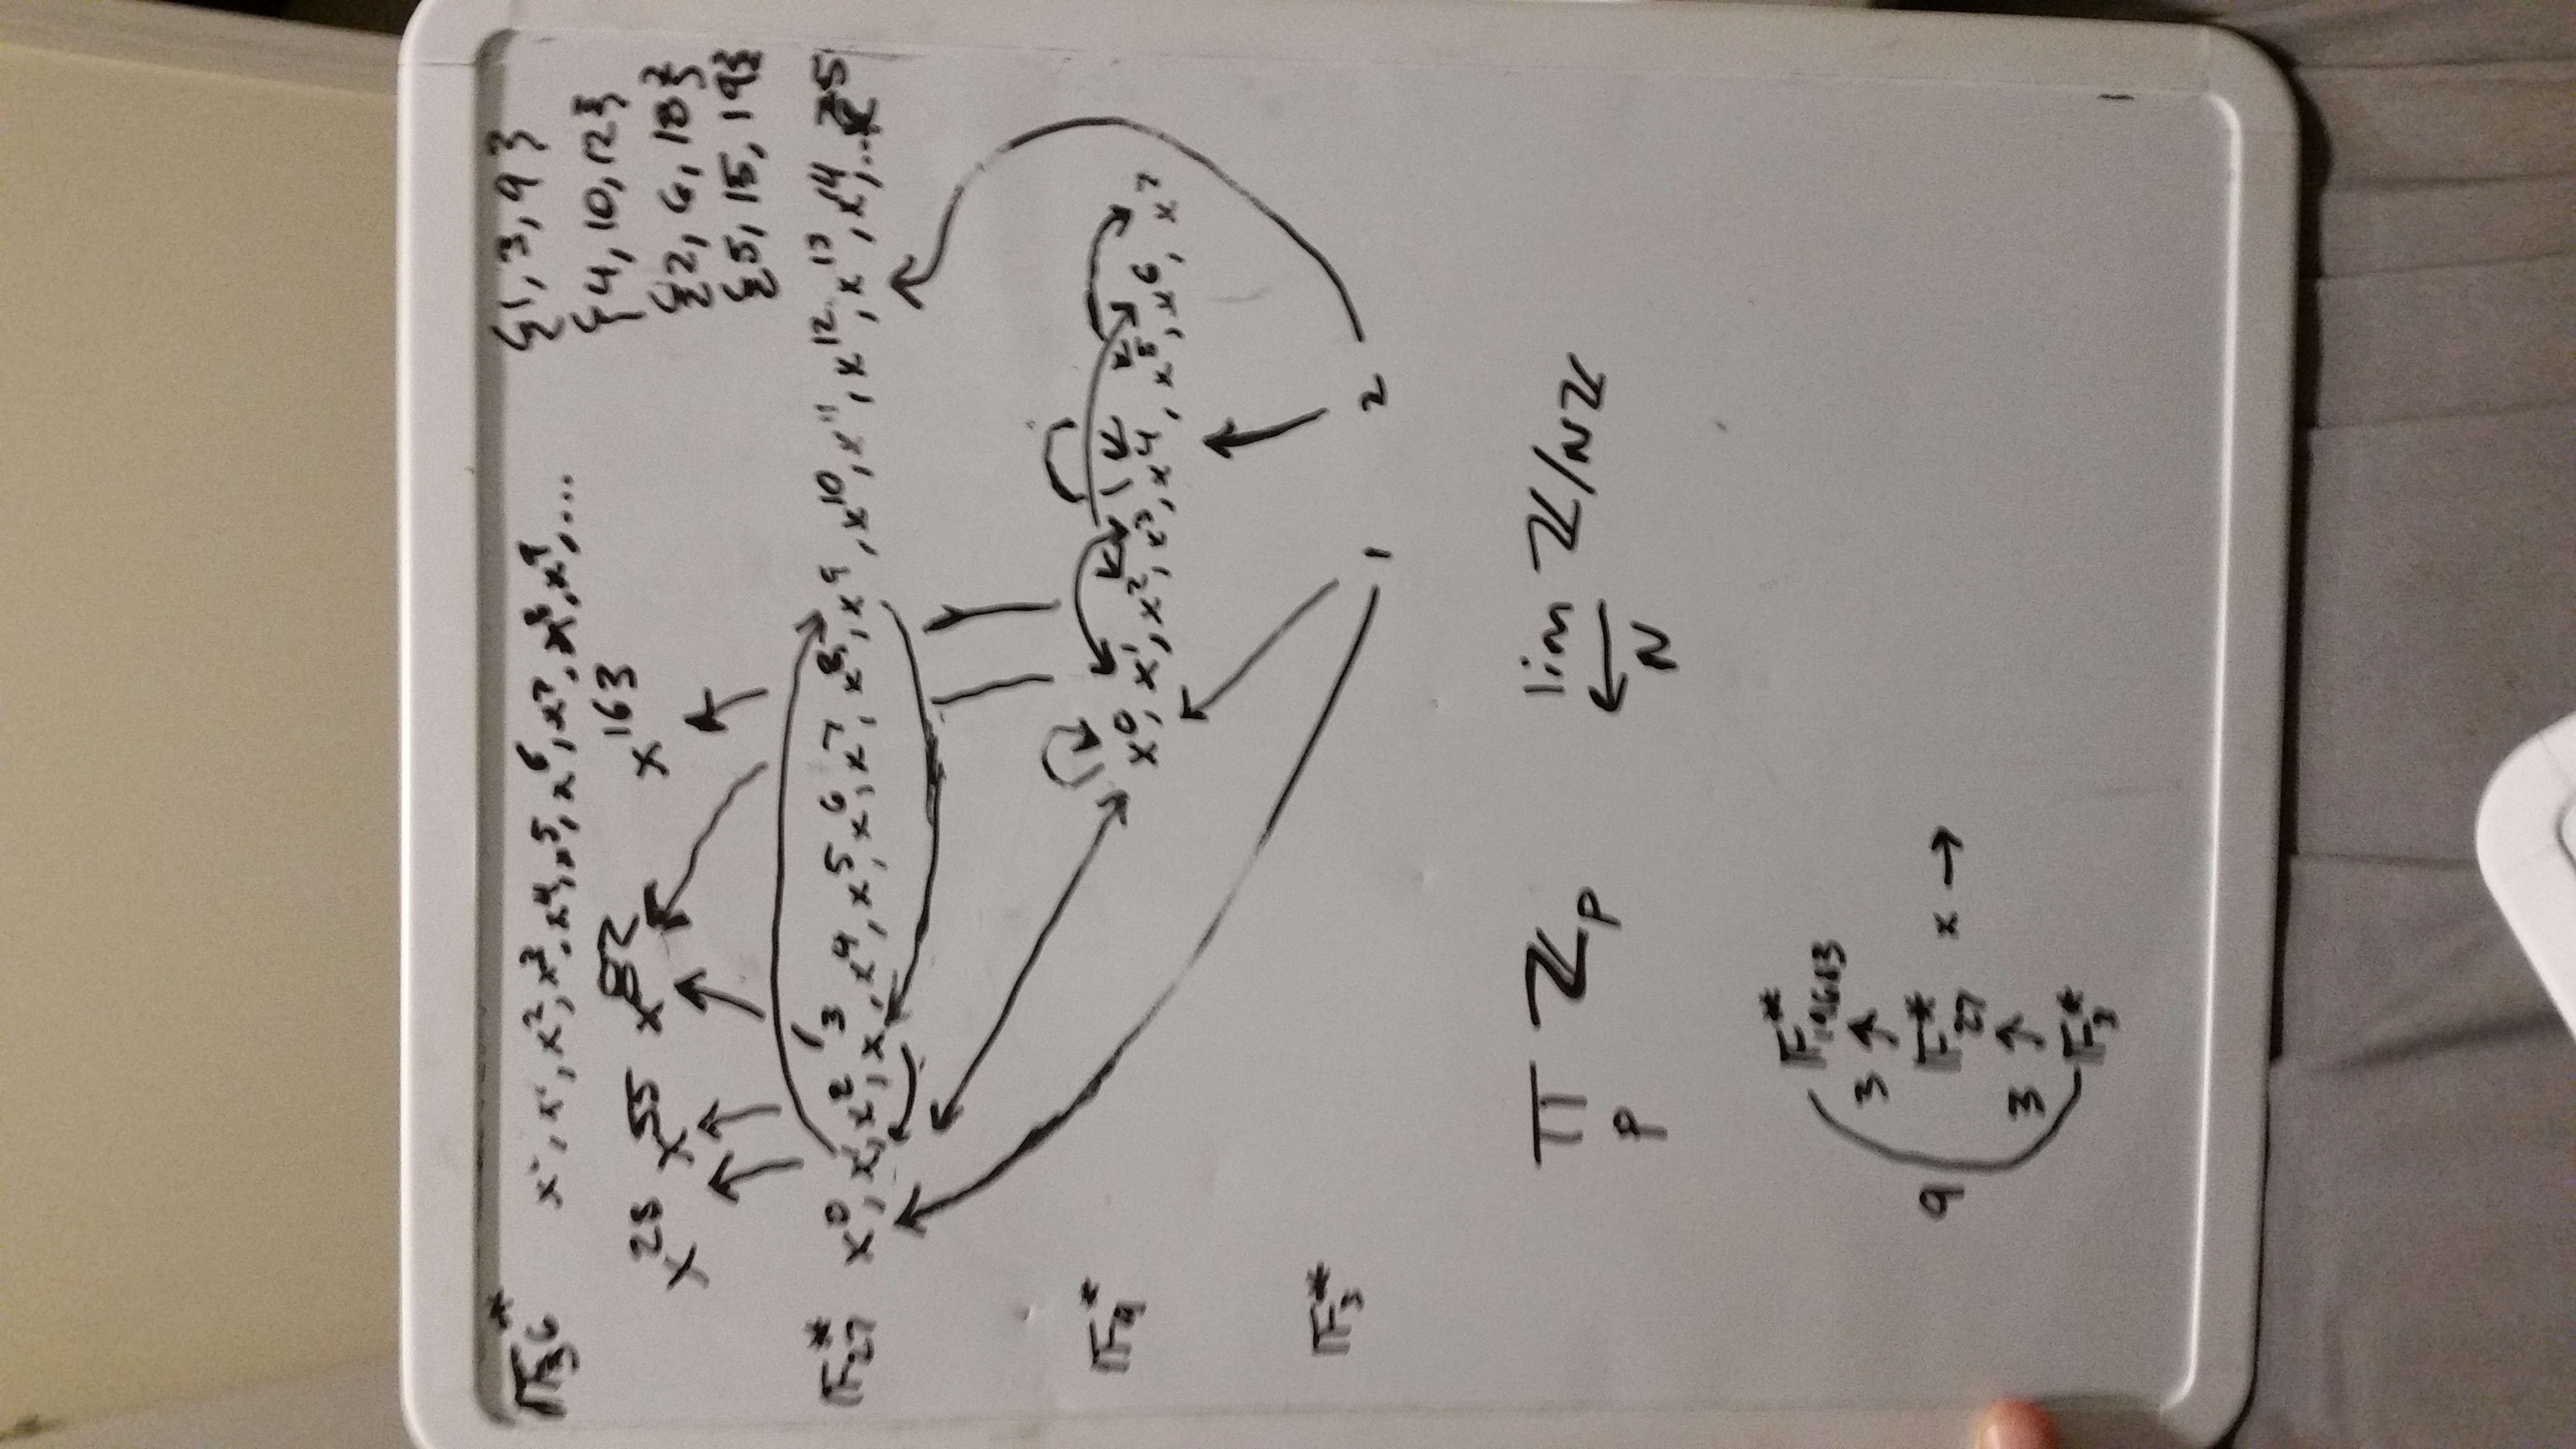 𝔽₃₆* x⁰, x¹, x², x³, x⁴, x⁵, x⁶, x⁷, x⁸, x⁹, ...
{1, 3, 9}
{4, 10, 12}
{2, 6, 18}
{5, 15, 19}
x²⁸ x⁵⁵ x⁸² x¹⁶³
𝔽₂₇* x⁰, x¹, x², x³, x⁴, x⁵, x⁶, x⁷, x⁸, x⁹, x¹⁰, x¹¹, x¹², x¹³, x¹⁴, ...
𝔽₉* x⁰, x¹, x², x³, x⁴, x⁵, x⁶, x⁷
𝔽₃* 1 2
∏ ℤₚ lim ℤ/Nℤ
p ← N
𝔽₁₉₆₈₃*
3 ↑
9 𝔽₂₇* x →
3 ↑
𝔽₃*